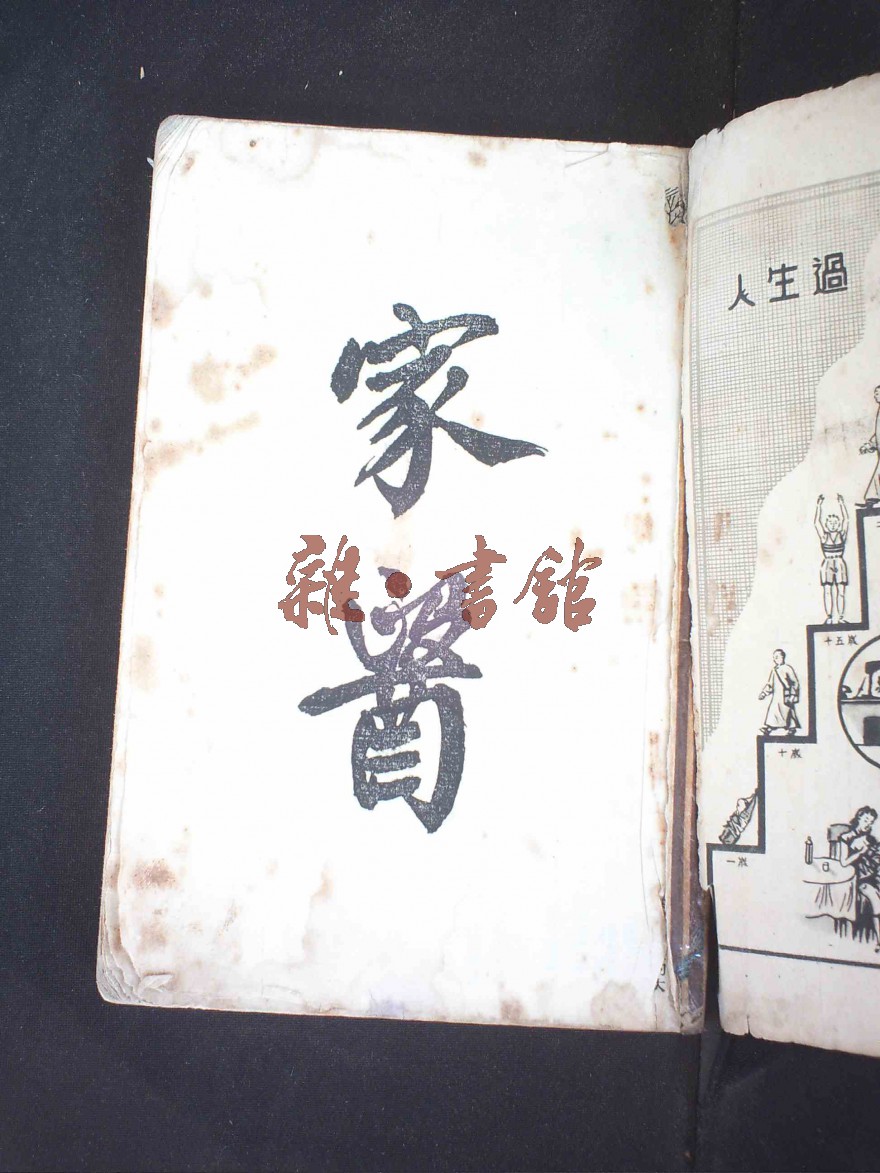 家
醫
雜·書館
人生過
十五歲
十歲
一歲